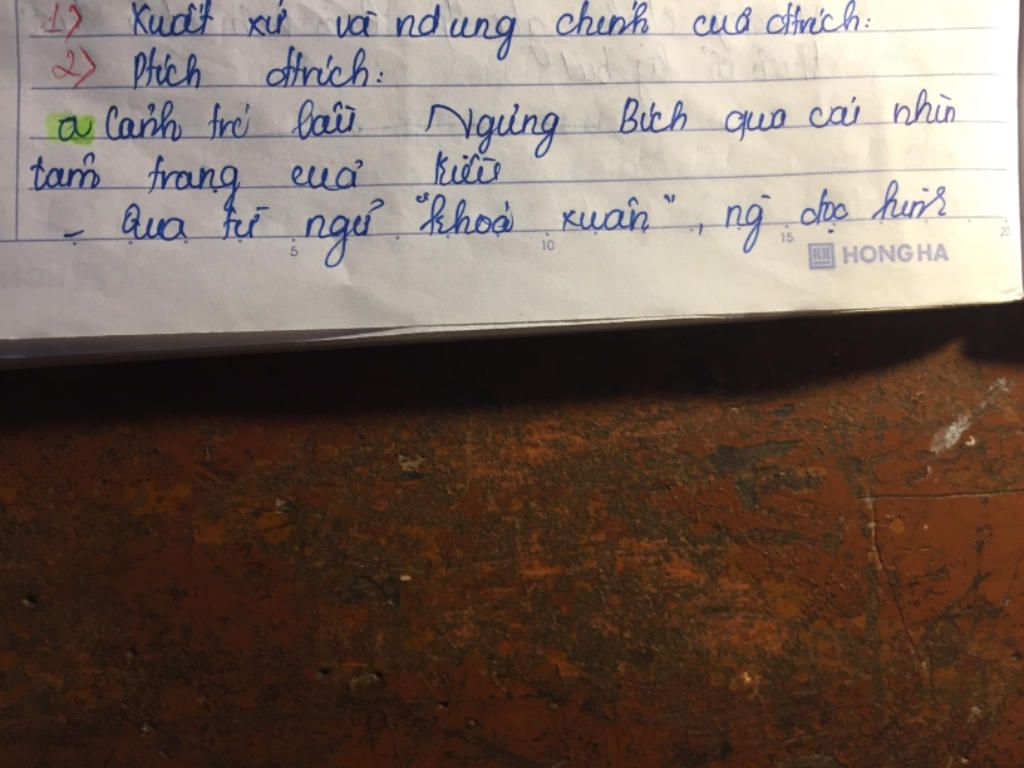 1) Xuất xứ và ndung chính của đtrích:
2) Ptích đtrích:
a Cảnh trí lầu Ngưng Bích qua cái nhìn
tâm trạng của Kiều
- Qua từ ngữ "khoá xuân", ng đọc hình
5 10 15 20
HONG HA